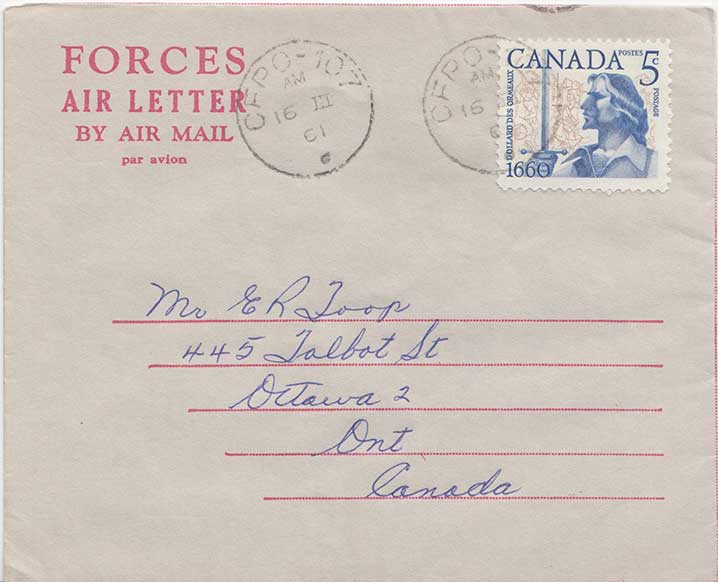 FORCES
AIR LETTER
BY AIR MAIL
par avion
CFPO-107
AM
16 III
61
CFPO-107
AM
16
6
CANADA POSTES 5c
POSTAGE
DOLLARD DES ORMEAUX
1660
Mr E R Toop
445 Talbot St
Ottawa 2
Ont
Canada